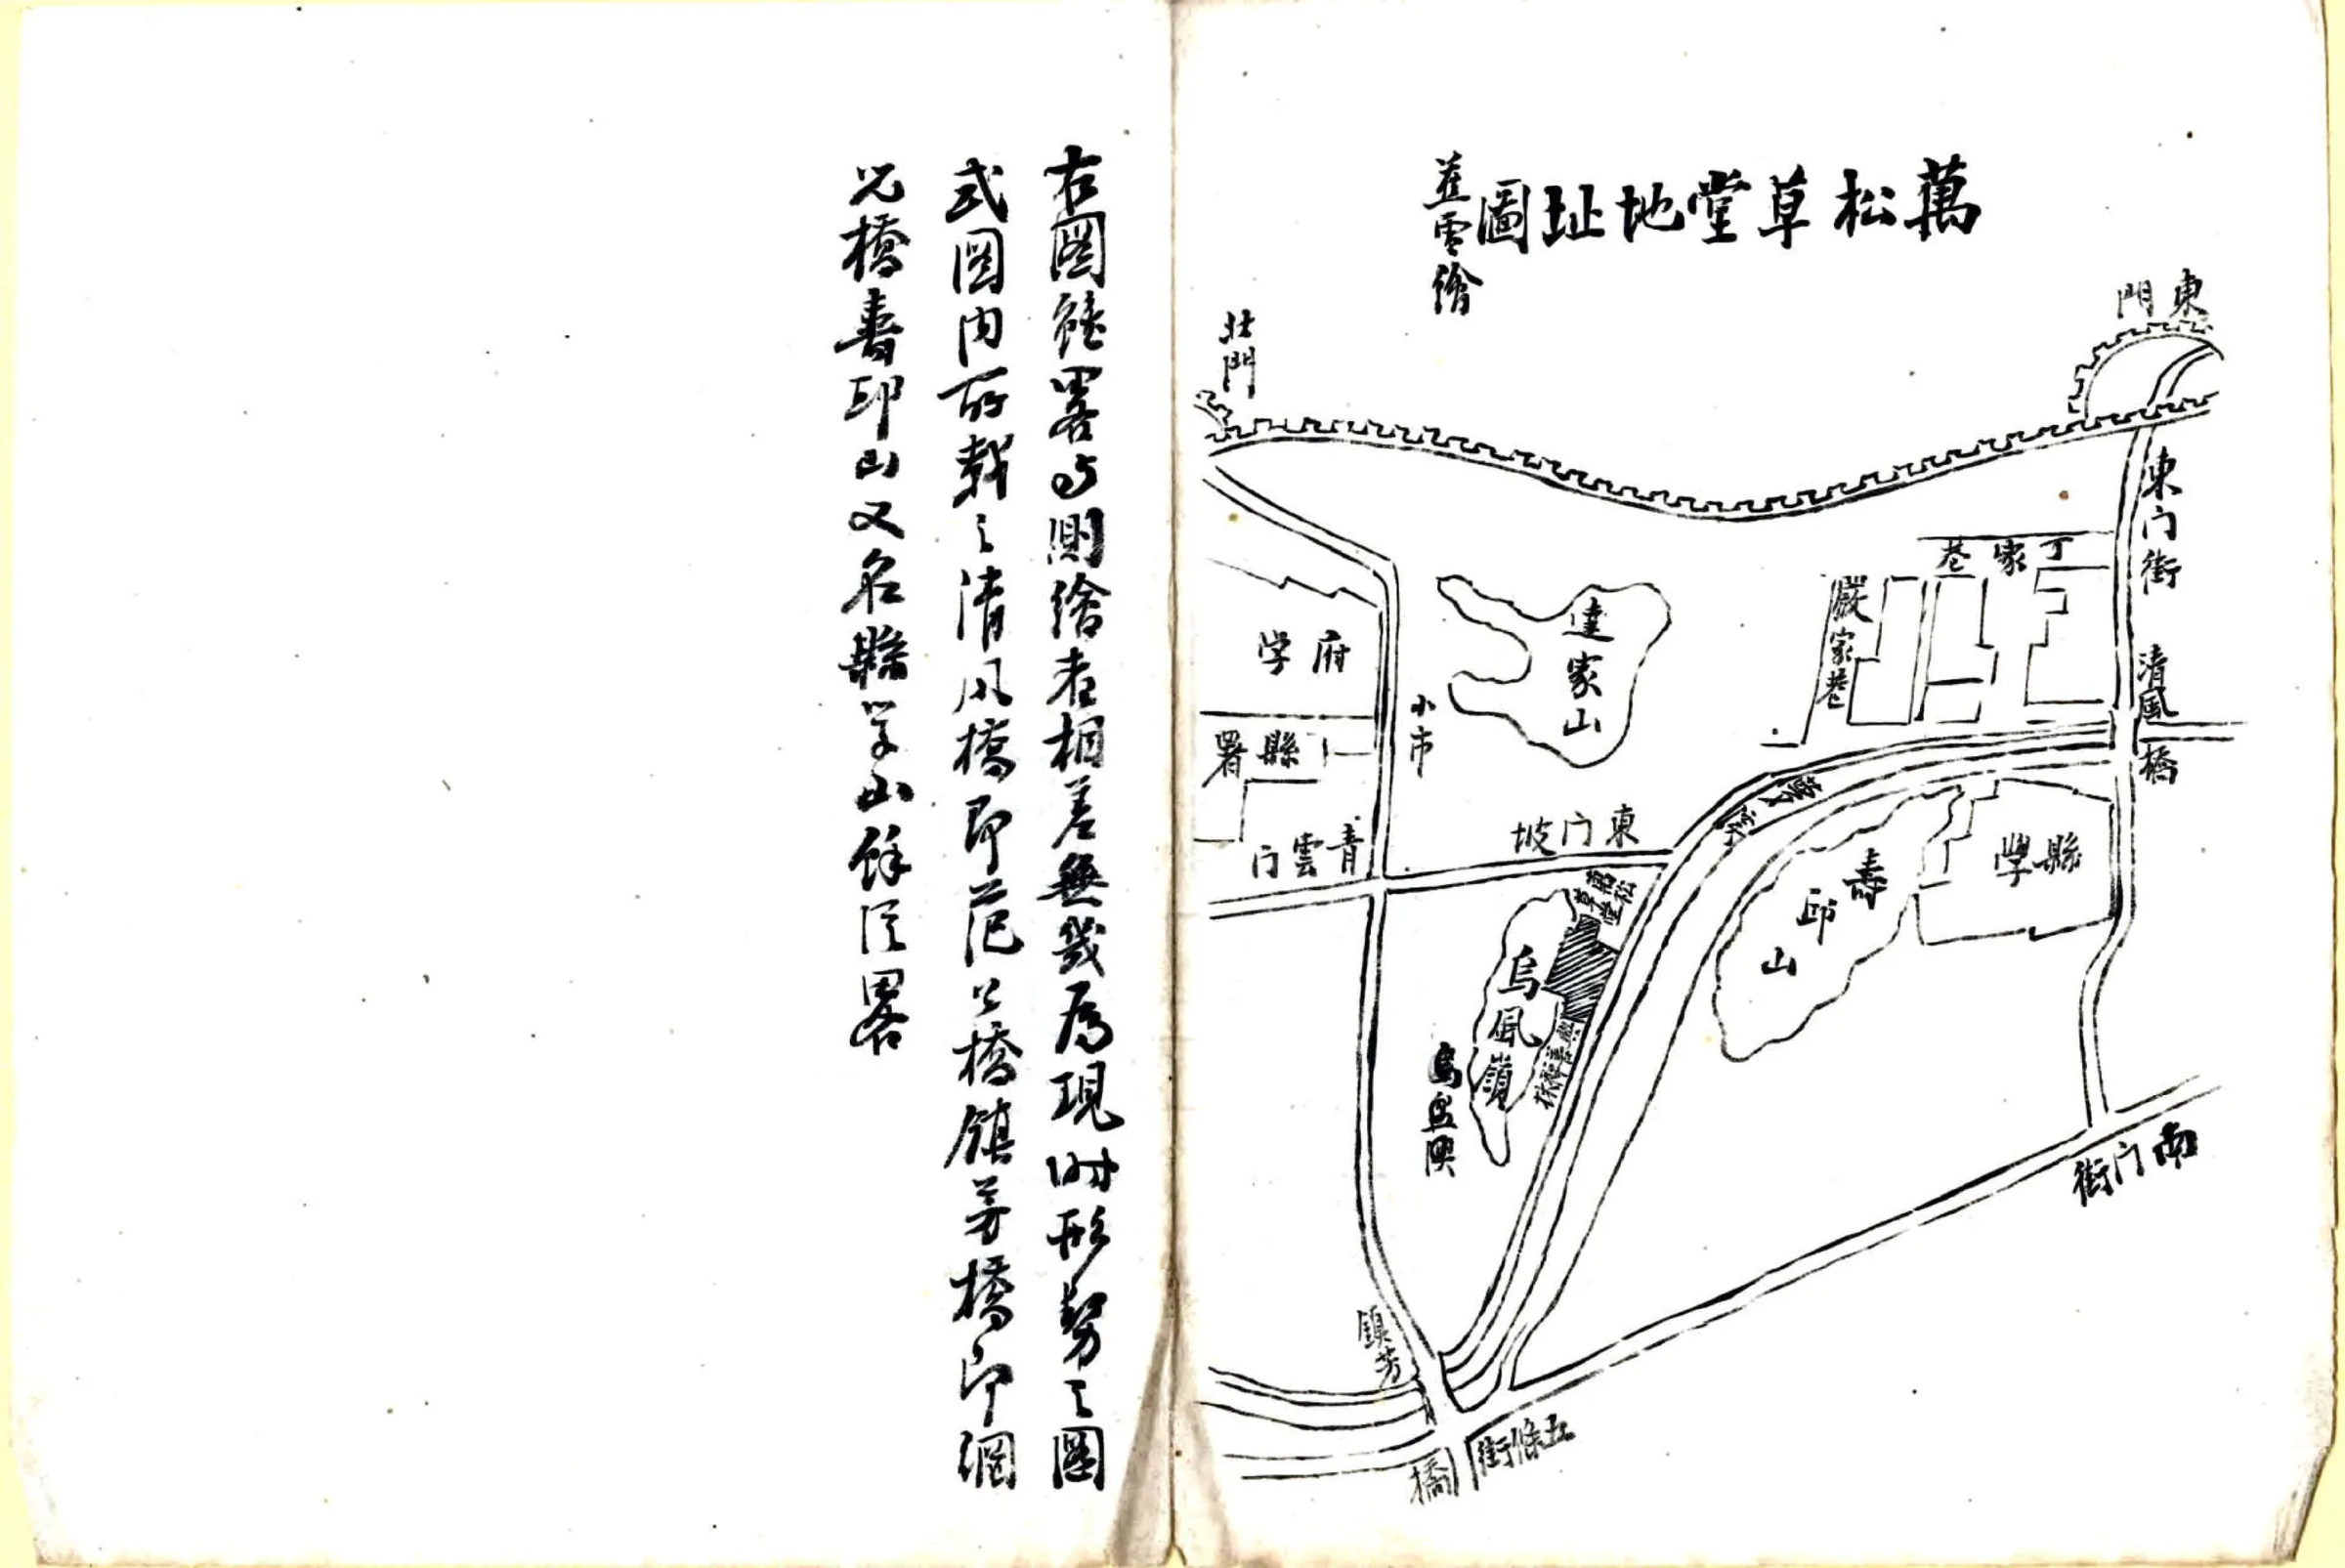 萬松草堂地址圖
繪
東門
北門
東门街
丁家巷
嚴家巷
清風橋
達家山
府学
小市
縣署
東门坡
青雲门
縣學
壽邱山
草堂
烏風嶺
南门街
鎮芳橋
五條街
右圖雖畧与測繪者相差無幾為現时形势之圖
式圖内所載之清风橋即范公橋鎮芳橋即網
兒橋壽邱山又名縣学山餘從畧